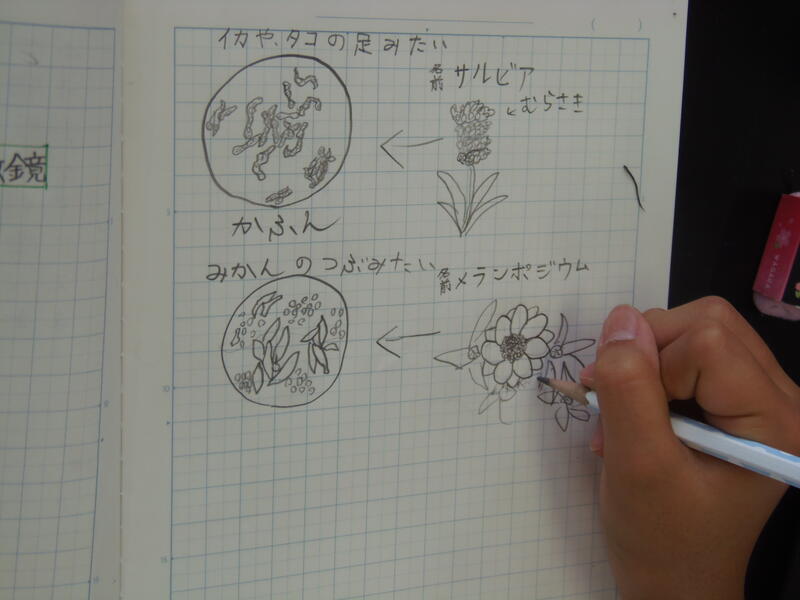 イカや、タコの足みたい
名前 サルビア
むらさき
かふん
みかんのつぶみたい
名前 メランポジウム
鏡
5
10
15